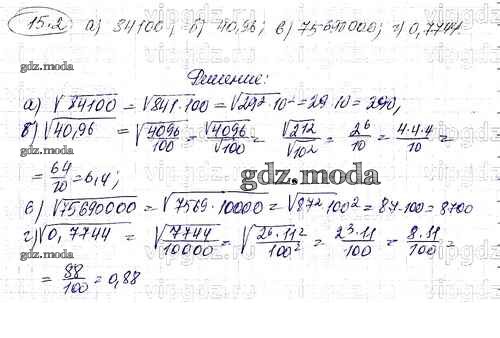 15.2 а) 84100; б) 40,96; в) 75690000; г) 0,7744
gdz.moda
Решение:
а) √84100 = √841·100 = √29²·10² = 29·10 = 290,
gdz.moda
б) √40,96 = √4096/100 = √4096/√100 = √2¹²/√10² = 2⁶/10 = 4·4·4/10 =
= 64/10 = 6,4;
gdz.moda
в) √75690000 = √7569·10000 = √87²·100² = 87·100 = 8700
г) √0,7744 = √7744/10000 = √2⁶·11²/100² = 2³·11/100 = 8·11/100 =
= 88/100 = 0,88
gdz.moda